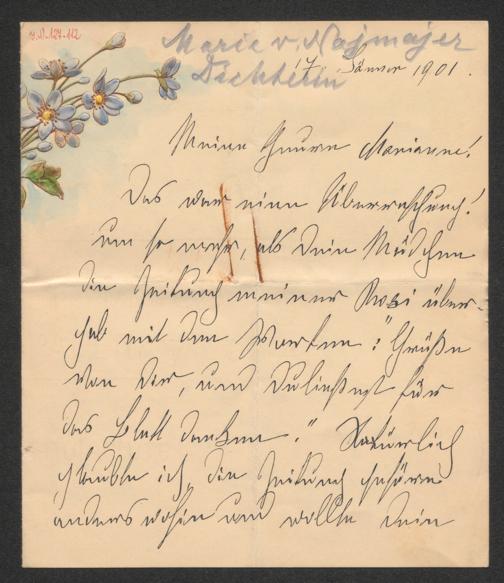 I.N. 127.112
Marie v. Najmajer
Dichterin
17. Jänner 1901.
Meine theure Marianne!
Das war eine Überraschung!
um so mehr, als Dein Mädchen
die Zeitung meiner Rosi über-
gab mit den Worten: "Grüße
von Dir, und Du ließest für
das Blatt danken." Natürlich
glaubte ich, die Zeitung gehöre
anders wohin und wollte Dein